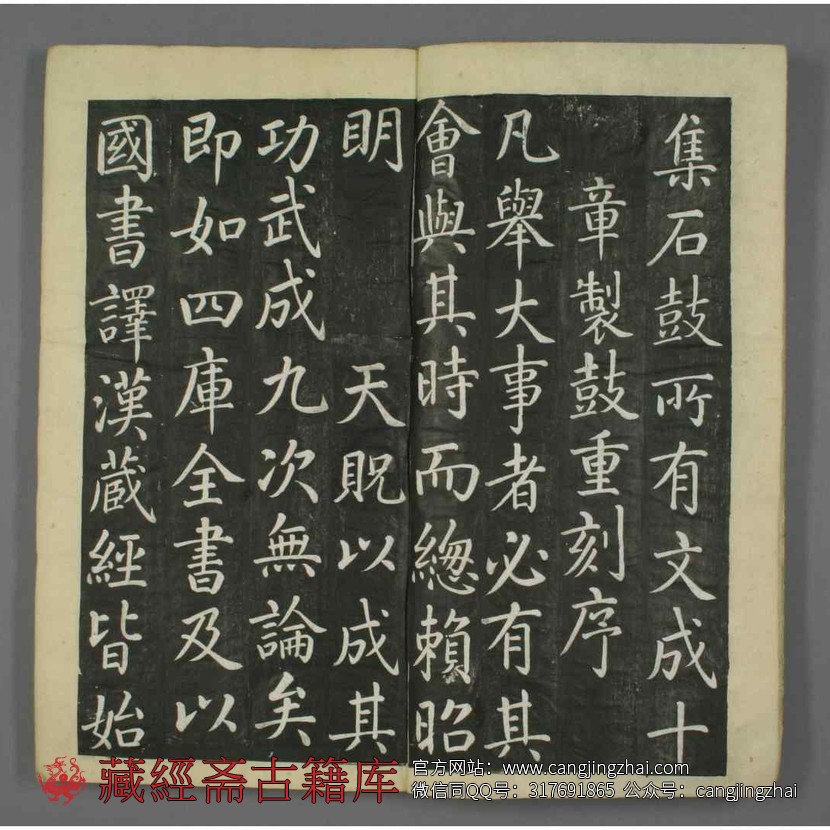 集石鼓所有文成十
章製鼓重刻序
凡舉大事者必有其
會與其時而總賴昭
明 天貺以成其
功武成九次無論矣
即如四庫全書及以
國書譯漢藏經皆始
藏經斋古籍库
官方网站：www.cangjingzhai.com
微信同QQ号：317691865 公众号：cangjingzhai